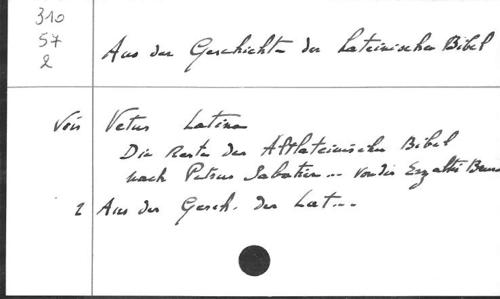 310
57
2
Aus der Geschichte der Lateinischen Bibel
Voir Vetus Latina
Die Reste der Altlateinischen Bibel
nach Petrus Sabatier ... von der Erzabtei
2 Aus der Gesch. der Lat...